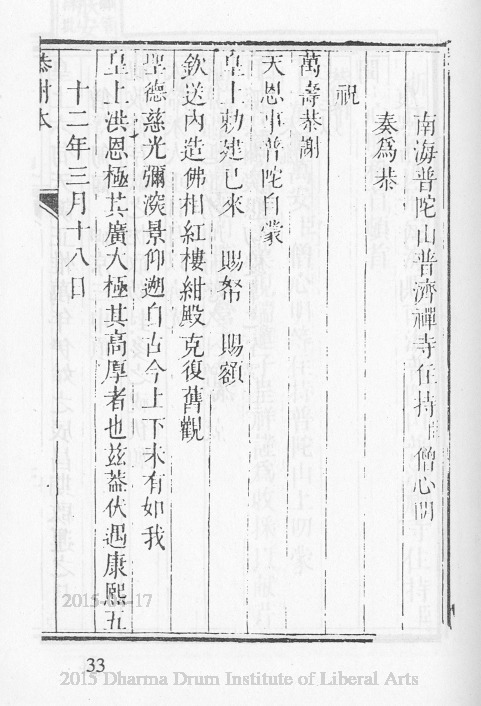 南海普陀山普濟禪寺住持 僧心明
奏爲恭
祝
萬壽恭謝
天恩事普陀自蒙
皇上勅建已來 賜帑 賜額
欽送內造佛相紅樓紺殿克復舊觀
聖德慈光彌深景仰遡自古今上下未有如我
皇上洪恩極其廣大極其高厚者也茲蓋伏遇康熙五
十二年三月十八日
33
2015-04-17
2015 Dharma Drum Institute of Liberal Arts